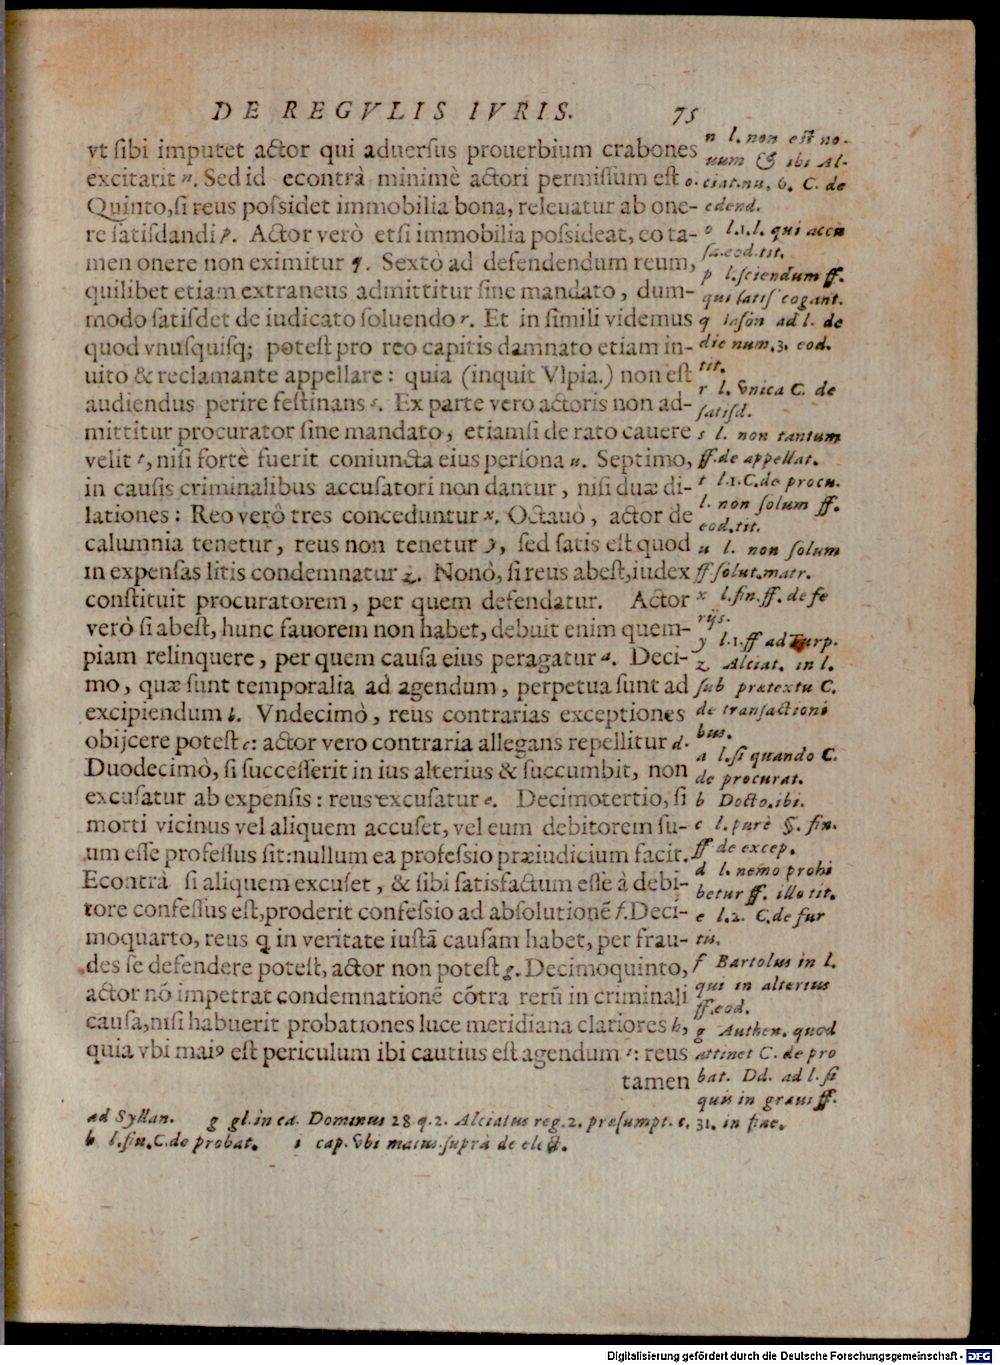 DE REGVLIS IVRIS. 75
vt sibi imputet actor qui aduersus prouerbium crabones
excitarit n. Sed id econtrà minimè actori permissum est o.
Quinto, si reus possidet immobilia bona, releuatur ab one-
re satisdandi p. Actor verò etsi immobilia possideat, eo ta-
men onere non eximitur q. Sextò ad defendendum reum,
quilibet etiam extraneus admittitur sine mandato, dum-
modo satisdet de iudicato soluendo r. Et in simili videmus
quod vnusquisq; potest pro reo capitis damnato etiam in-
uito & reclamante appellare: quia (inquit Vlpia.) non est
audiendus perire festinans s. Ex parte vero actoris non ad-
mittitur procurator sine mandato, etiamsi de rato cauere
velit t, nisi fortè fuerit coniuncta eius persona u. Septimo,
in causis criminalibus accusatori non dantur, nisi duæ di-
lationes: Reo verò tres conceduntur x. Octauò, actor de
calumnia tenetur, reus non tenetur y, sed satis est quod
in expensas litis condemnatur z. Nonò, si reus abest, iudex
constituit procuratorem, per quem defendatur. Actor
verò si abest, hunc fauorem non habet, debuit enim quem-
piam relinquere, per quem causa eius peragatur a. Deci-
mo, quæ sunt temporalia ad agendum, perpetua sunt ad
excipiendum b. Vndecimò, reus contrarias exceptiones
obijcere potest c: actor vero contraria allegans repellitur d.
Duodecimò, si successerit in ius alterius & succumbit, non
excusatur ab expensis: reus excusatur e. Decimotertio, si
morti vicinus vel aliquem accuset, vel eum debitorem su-
um esse professus sit: nullum ea professio præiudicium facit.
Econtrà si aliquem excuset, & sibi satisfactum esse à debi-
tore confessus est, proderit confessio ad absolutionē f. Deci-
moquarto, reus q in veritate iustā causam habet, per frau-
des se defendere potest, actor non potest g. Decimoquinto,
actor nō impetrat condemnationē cōtra reū in criminali
causa, nisi habuerit probationes luce meridiana clariores h,
quia vbi maiꝰ est periculum ibi cautius est agendum i: reus
tamen
n l. non est no-
uum & ibi Al-
ciat. nu. 6. C. de
edend.
o l.1. l. qui accu
sa. eod. tit.
p l. sciendum ff.
qui satis cogant.
q Iason ad l. de
die num. 3. eod.
tit.
r l. vnica C. de
satisd.
s l. non tantum
ff. de appellat.
t l.1. C. de procu.
l. non solum ff.
eod. tit.
u l. non solum
ff solut. matr.
x l. fin. ff. de fe
rijs.
y l.1. ff ad Turp.
z Alciat. in l.
sub prætextu C.
de transactioni
bus.
a l. si quando C.
de procurat.
b Docto. ibi.
c l. purè §. fin.
ff de excep.
d l. nemo prohi
betur ff. illo tit.
e l.2. C. de fur
tis.
f Bartolus in l.
qui in alterius
ff. eod.
g Authen. quod
attinet C. de pro
bat. Dd. ad l. si
quis in graui ff.
ad Syllan. g gl. in ca. Dominus 28 q. 2. Alciatus reg. 2. præsumpt. c. 31. in fine.
h l. fin. C. de probat. i cap. vbi maius suprà de elect.
Digitalisierung gefördert durch die Deutsche Forschungsgemeinschaft - DFG